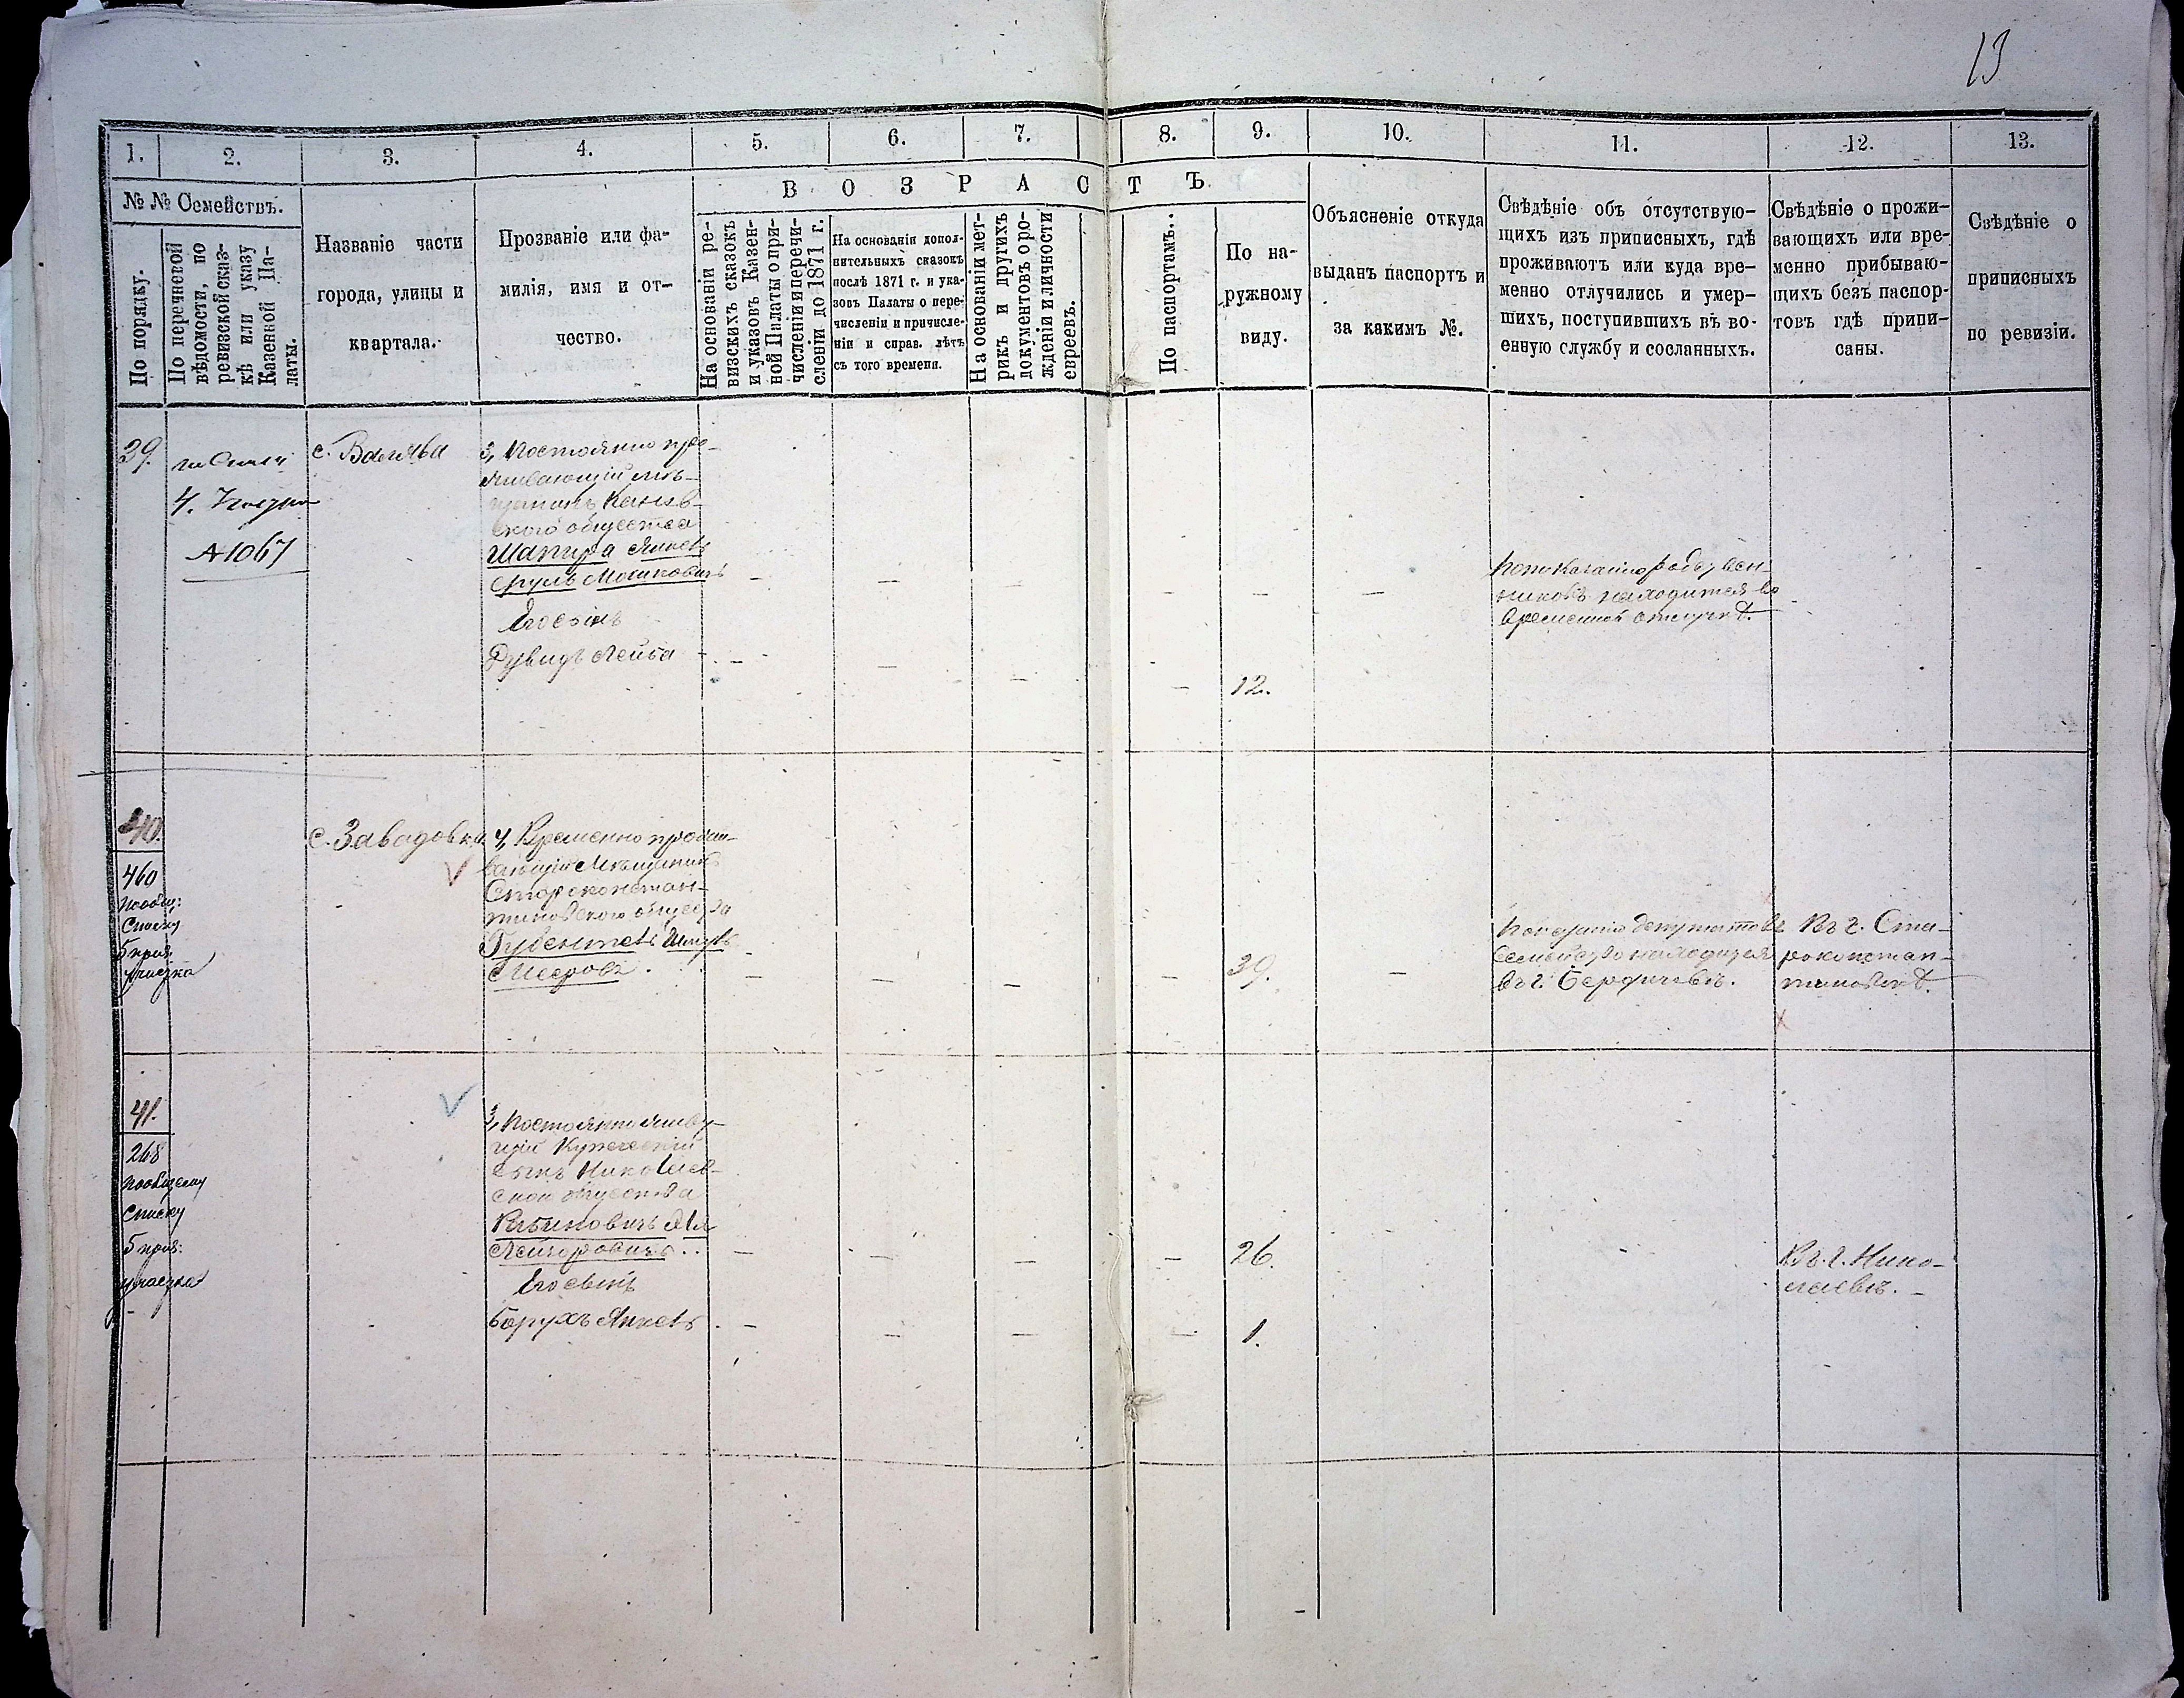 13
1. 2. 3. 4. 5. 6. 7. 8. 9. 10. 11. 12. 13.
№ № Семействъ.
По порядку.
По перечневой
вѣдомости, по
ревизской сказ-
кѣ или указу
Казенной Па-
латы.
Названіе части
города, улицы и
квартала.
Прозваніе или фа-
милія, имя и от-
чество.
ВОЗРАСТЪ
На основаніи ре-
визскихъ сказокъ
и указовъ Казен-
ной Палаты о при-
численіи и перечи-
сленіи до 1871 г.
На основаніи допол-
нительныхъ сказокъ
послѣ 1871 г. и ука-
зовъ Палаты о пере-
численіи и причисле-
ніи и справ. лѣтъ
съ того времени.
На основаніи мет-
рикъ и другихъ
документовъ о ро-
жденіи и личности
евреевъ.
По паспортамъ.
По на-
ружному
виду.
Объясненіе откуда
выданъ паспортъ и
за какимъ №.
Свѣдѣніе объ отсутствую-
щихъ изъ приписныхъ, гдѣ
проживаютъ или куда вре-
менно отлучились и умер-
шихъ, поступившихъ въ во-
енную службу и сосланныхъ.
Свѣдѣніе о прожи-
вающихъ или вре-
менно прибываю-
щихъ безъ паспор-
товъ гдѣ припи-
саны.
Свѣдѣніе о
приписныхъ
по ревизіи.
39.
4.
№ 1067
с.
3, Постоянно про-
живающій мѣ-
щанинъ Канев-
ского общества
Шапира Янкель
Сруль Мошковичъ
Его сынъ
Дувидъ Лейба
12.
родственн-
никовъ находится во
временной отлучкѣ.
40.
460
по общ:
списку
5 приз.
участка
с. Завадовка
4, Временно прожи-
вающій Мѣщанинъ
Староконстан-
тиновского общества
Мееровъ.
39.
депутатовъ
семейство находится
въ г. Бердичевѣ.
Въ г. Ста-
роконстан-
тиновѣ.
41.
268
по общему
списку
5 приз:
участка
3, Постоянно живу-
щій Купеческій
сынъ Николаев-
ского общества
Его сынъ
Борухъ Янкель
26.
1.
Въ г. Нико-
лаевѣ.